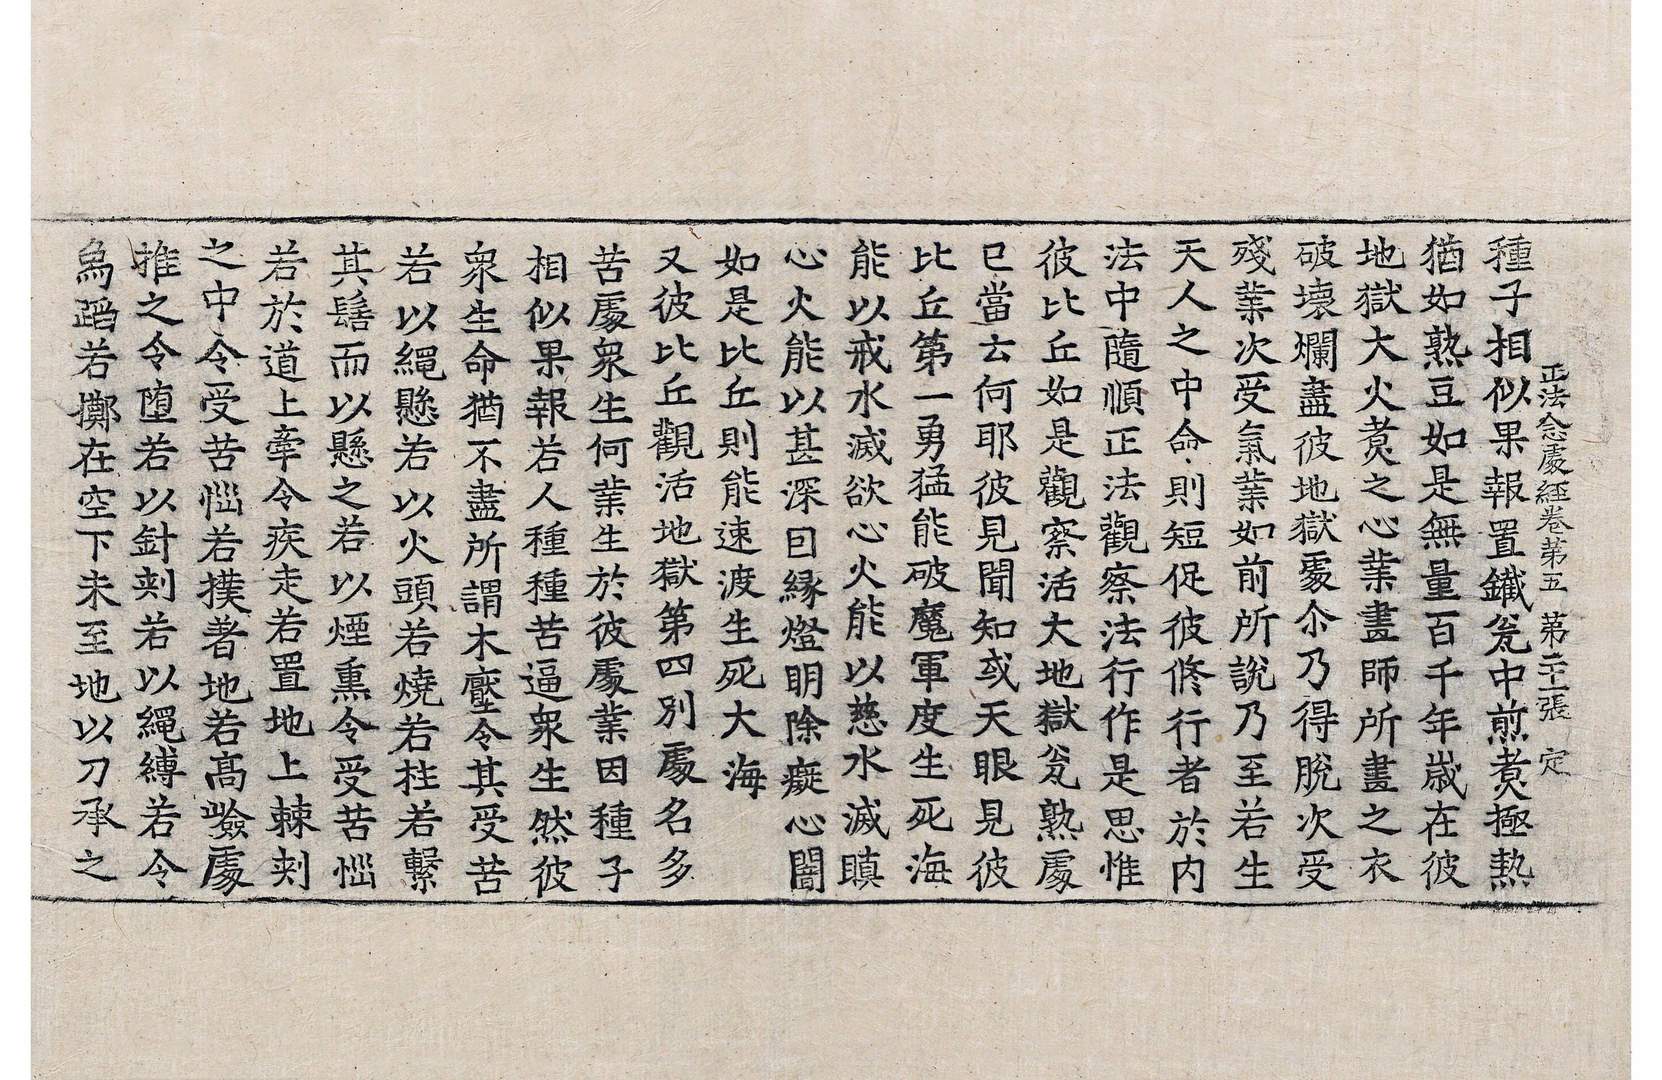 正法念處經卷第五 第二十一張 定
種子相似果報置鐵瓮中煎煮極熱
猶如熟豆如是無量百千年歲在彼
地獄大火煮之心業畫師所畫之衣
破壞爛盡彼地獄處尒乃得脫次受
殘業次受氣業如前所說乃至若生
天人之中命則短促彼修行者於內
法中隨順正法觀察法行作是思惟
彼比丘如是觀察活大地獄瓮熟處
已當云何耶彼見聞知或天眼見彼
比丘第一勇猛能破魔軍度生死海
能以戒水滅欲心火能以慈水滅瞋
心火能以甚深因緣燈明除癡心闇
如是比丘則能速渡生死大海
又彼比丘觀活地獄第四別處名多
苦處衆生何業生於彼處業因種子
相似果報若人種種苦逼衆生然彼
衆生命猶不盡所謂木壓令其受苦
若以繩懸若以火頭若燒若拄若繫
其髻而以懸之若以煙熏令受苦惱
若於道上牽令疾走若置地上棘刺
之中令受苦惱若撲著地若高嶮處
推之令墮若以針刺若以繩縛若令
烏蹈若擲在空下未至地以刀承之